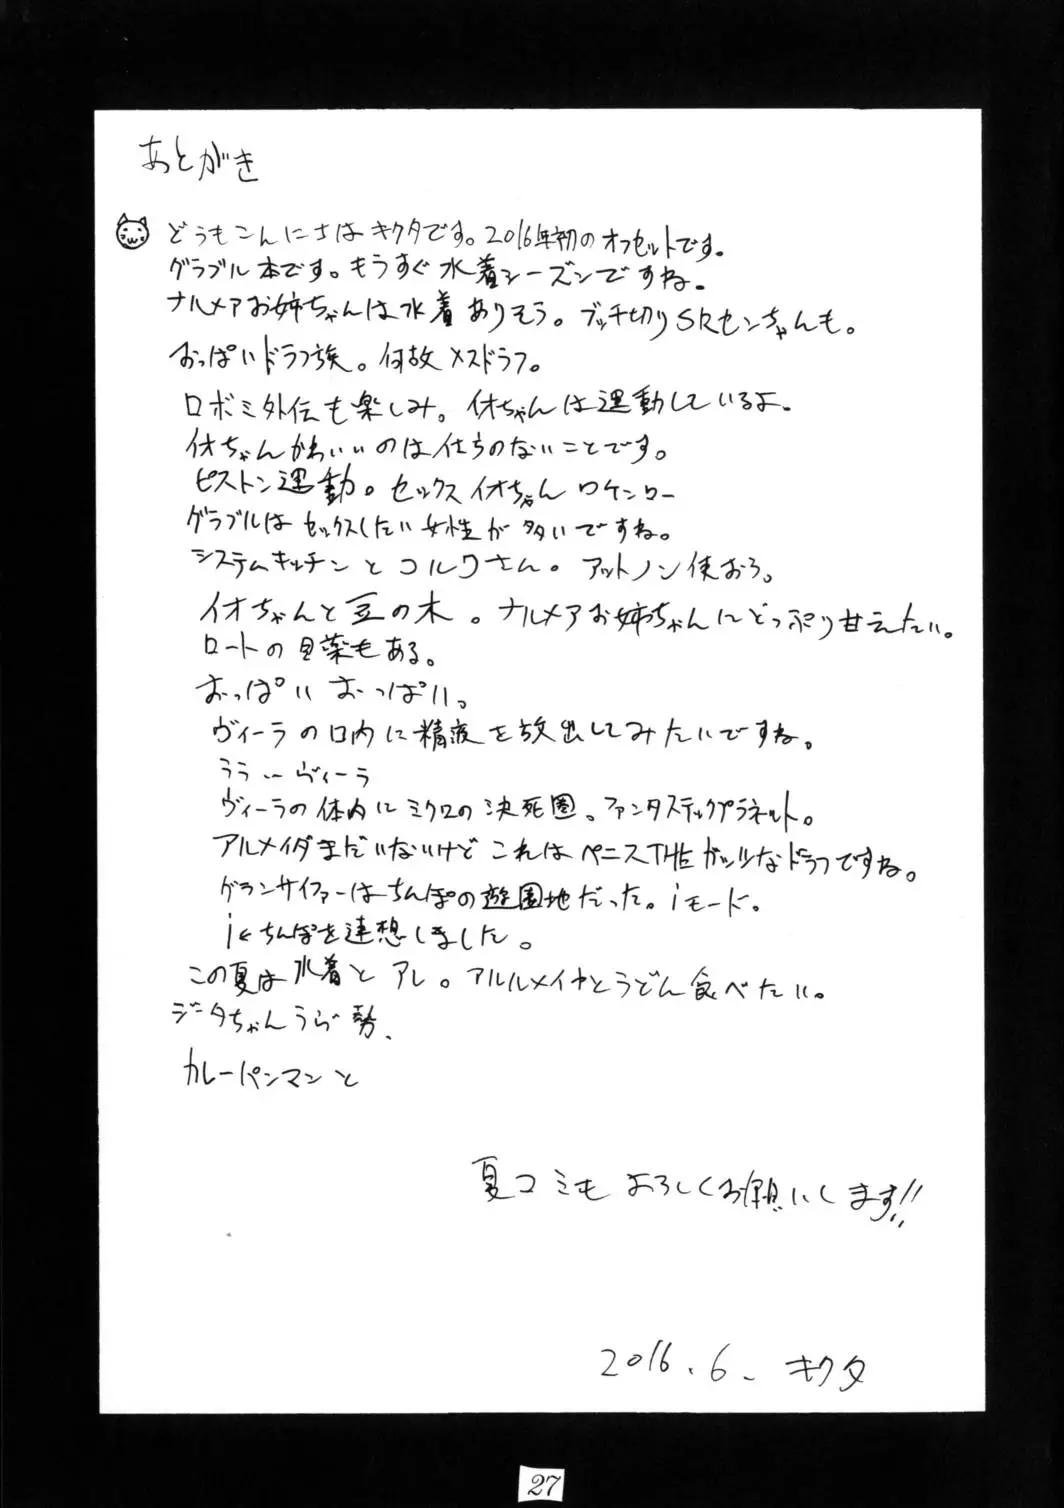 あとがき
どうもこんにちは キクタです。2016年初のオフセットです。
グラブル本です。もうすぐ水着シーズンですね。
ナルメアお姉ちゃんは水着ありそう。ブッチ切りSRセンちゃんも。
おっぱいドラフ族。何故メスドラフ。
ロボミ外伝も楽しみ。イオちゃんは運動しているよ。
イオちゃんかわいいのは仕方のないことです。
グラブルはセックスしたい女性が多いですね。
システムキッチンとコルワさん。アットノン使おう。
イオちゃんと豆の木。ナルメアお姉ちゃんにどっぷり甘えたい。
ロートの目薬もある。
おっぱい おっぱい。
ヴィーラの口内に精液を放出してみたいですね。
ララ…ヴィーラ
ヴィーラの体内にミクロの決死圏。ファンタスティックプラネット。
アルメイダまだいないけどこれはペニスTHEガッツなドラフですね。
グランサイファーはちんぽの遊園地だった。iモード。
i←ちんぽを連想しました。
この夏は水着とアレ。アルルメイヤとうどん食べたい。
ジータちゃんうらぶ勢、
カレーパンマンと
夏コミもよろしくお願いします!!
2016.6. キクタ
27